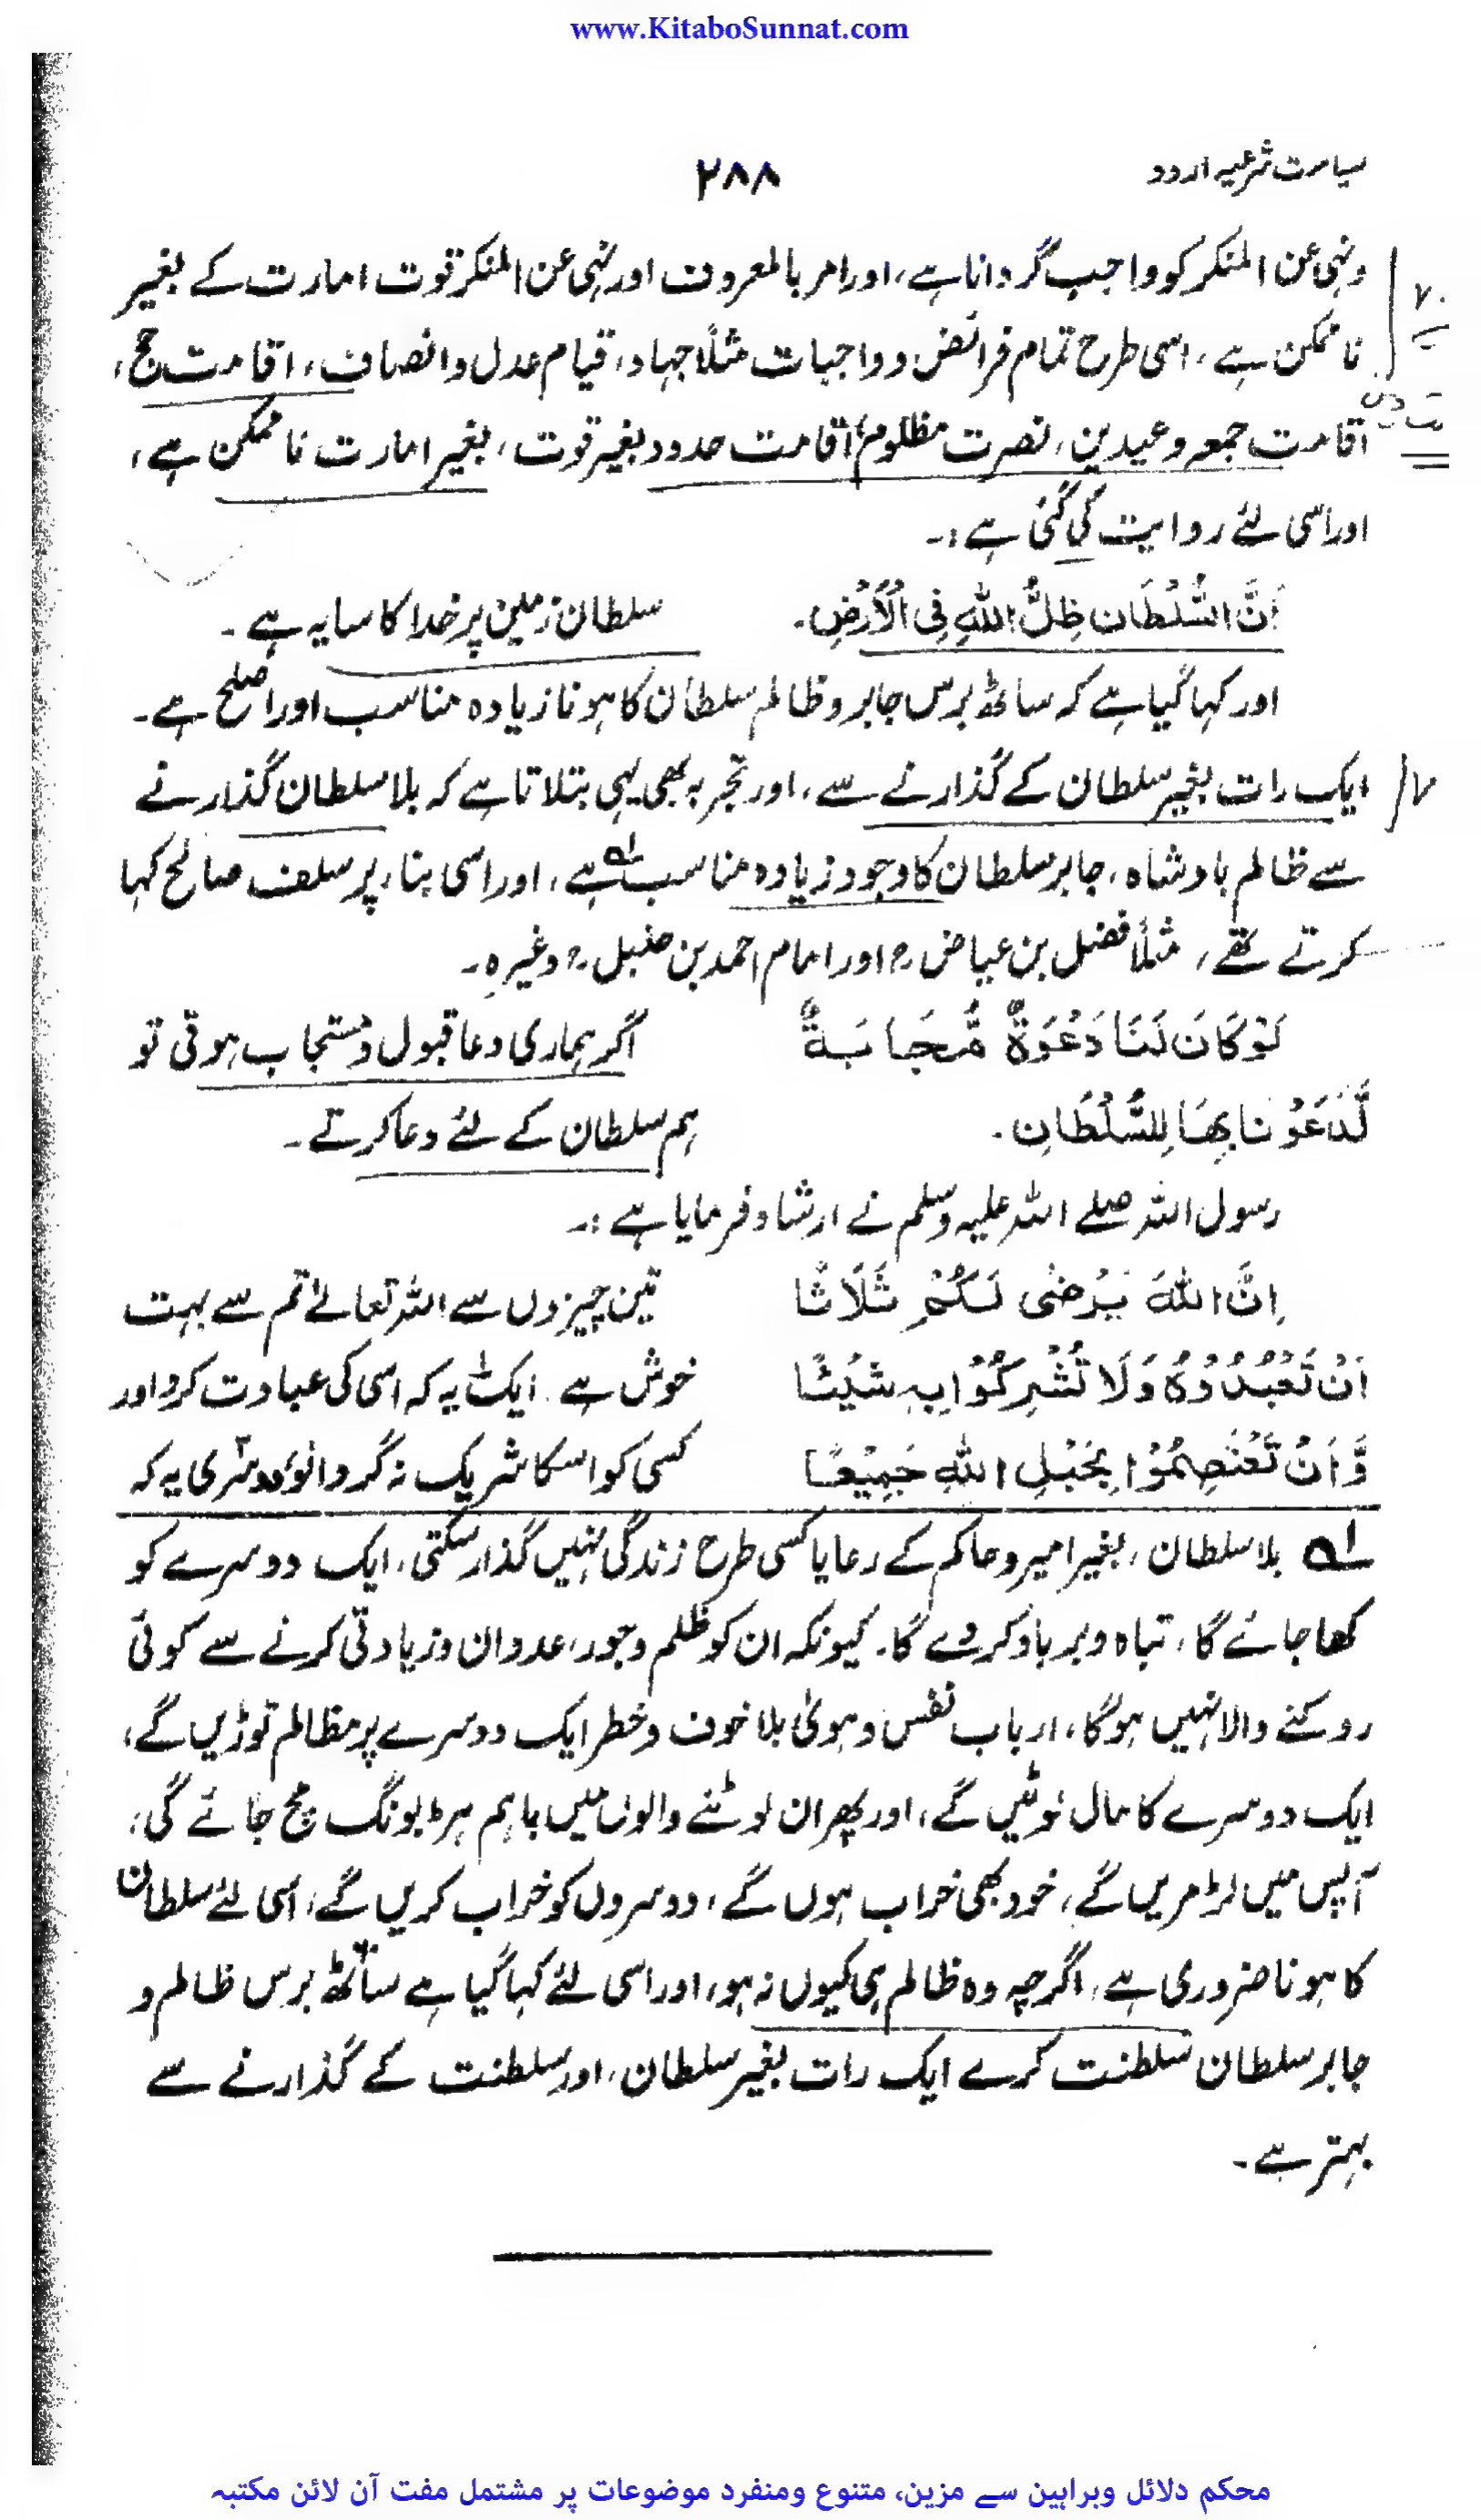 www.KitaboSunnat.com
سیاست شرعیہ اردو
۲۸۸
ونہی عن المنکر کو واجب گردانا ہے، اور امر بالمعروف اور نہی عن المنکر قوت امارت کے بغیر
ناممکن ہے، اسی طرح تمام فرائض و واجبات مثلاً جہاد، قیام عدل وانصاف، اقامت حج،
اقامت جمعہ وعیدین، نصرت مظلوم، اقامت حدود بغیر قوت، بغیر امارت ناممکن ہے،
اور اسی لئے روایت کی گئی ہے:۔
اَنَّ السُّلْطَان ظِلُّ اللهِ فِی الْاَرْضِ۔
سلطان زمین پر خدا کا سایہ ہے۔
اور کہا گیا ہے کہ ساٹھ برس جابر وظالم سلطان کا ہونا زیادہ مناسب اور اصلح ہے۔
ایک رات بغیر سلطان کے گذارنے سے، اور تجربہ بھی یہی بتلاتا ہے کہ بلا سلطان گذارنے
سے ظالم بادشاہ، جابر سلطان کا وجود زیادہ مناسب ہے،لہ اور اسی بناء پر سلف صالح کہا
کرتے تھے، مثلاً فضل بن عیاض رح اور امام احمد بن حنبل رح وغیرہ۔
لَوْ كَانَ لَنَا دَعْوَةٌ مُّجَابَةٌ
اگر ہماری دعا قبول ومستجاب ہوتی تو
لَّدَعَوْنَا بِهَا لِلسُّلْطَانِ۔
ہم سلطان کے لئے دعا کرتے۔
رسول اللہ صلے اللہ علیہ وسلم نے ارشاد فرمایا ہے:۔
اِنَّ اللهَ يَرْضٰى لَكُمْ ثَلَاثًا
تین چیزوں سے اللہ تعالےٰ تم سے بہت
اَنْ تَعْبُدُوْهُ وَلَا تُشْرِكُوْا بِهٖ شَيْئًا
خوش ہے۔ ایک یہ کہ اسی کی عبادت کرو اور
وَّاَنْ تَعْتَصِمُوْا بِحَبْلِ اللهِ جَمِيْعًا
کسی کو اسکا شریک نہ گردانو، دوسری یہ کہ
لہ بلا سلطان، بغیر امیر وحاکم کے رعایا کسی طرح زندگی نہیں گذار سکتی، ایک دوسرے کو
کھا جائے گا، تباہ وبرباد کر دے گا۔ کیونکہ ان کو ظلم وجور، عدوان وزیادتی کرنے سے کوئی
روکنے والا نہیں ہوگا، ارباب نفس وہویٰ بلا خوف وخطر ایک دوسرے پر مظالم توڑیں گے،
ایک دوسرے کا مال لوٹیں گے، اور پھر ان لوٹنے والوں میں باہم ہڑبونگ مچ جائے گی،
آپس میں لڑ مریں گے، خود بھی خراب ہوں گے، دوسروں کو خراب کریں گے، اسی لئے سلطان
کا ہونا ضروری ہے، اگرچہ وہ ظالم ہی کیوں نہ ہو، اور اسی لئے کہا گیا ہے ساٹھ برس ظالم و
جابر سلطان سلطنت کرے ایک رات بغیر سلطان، اور سلطنت کے گذارنے سے
بہتر ہے۔
محکم دلائل وبراہین سے مزین، متنوع ومنفرد موضوعات پر مشتمل مفت آن لائن مکتبہ